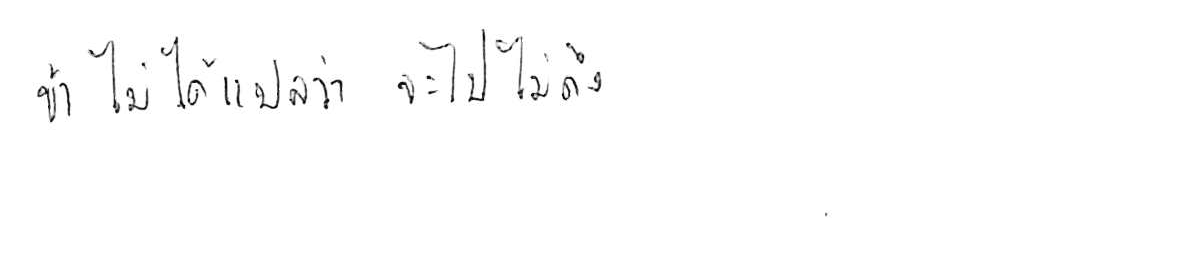 ช้า ไม่ได้แปลว่า จะไปไม่ถึง